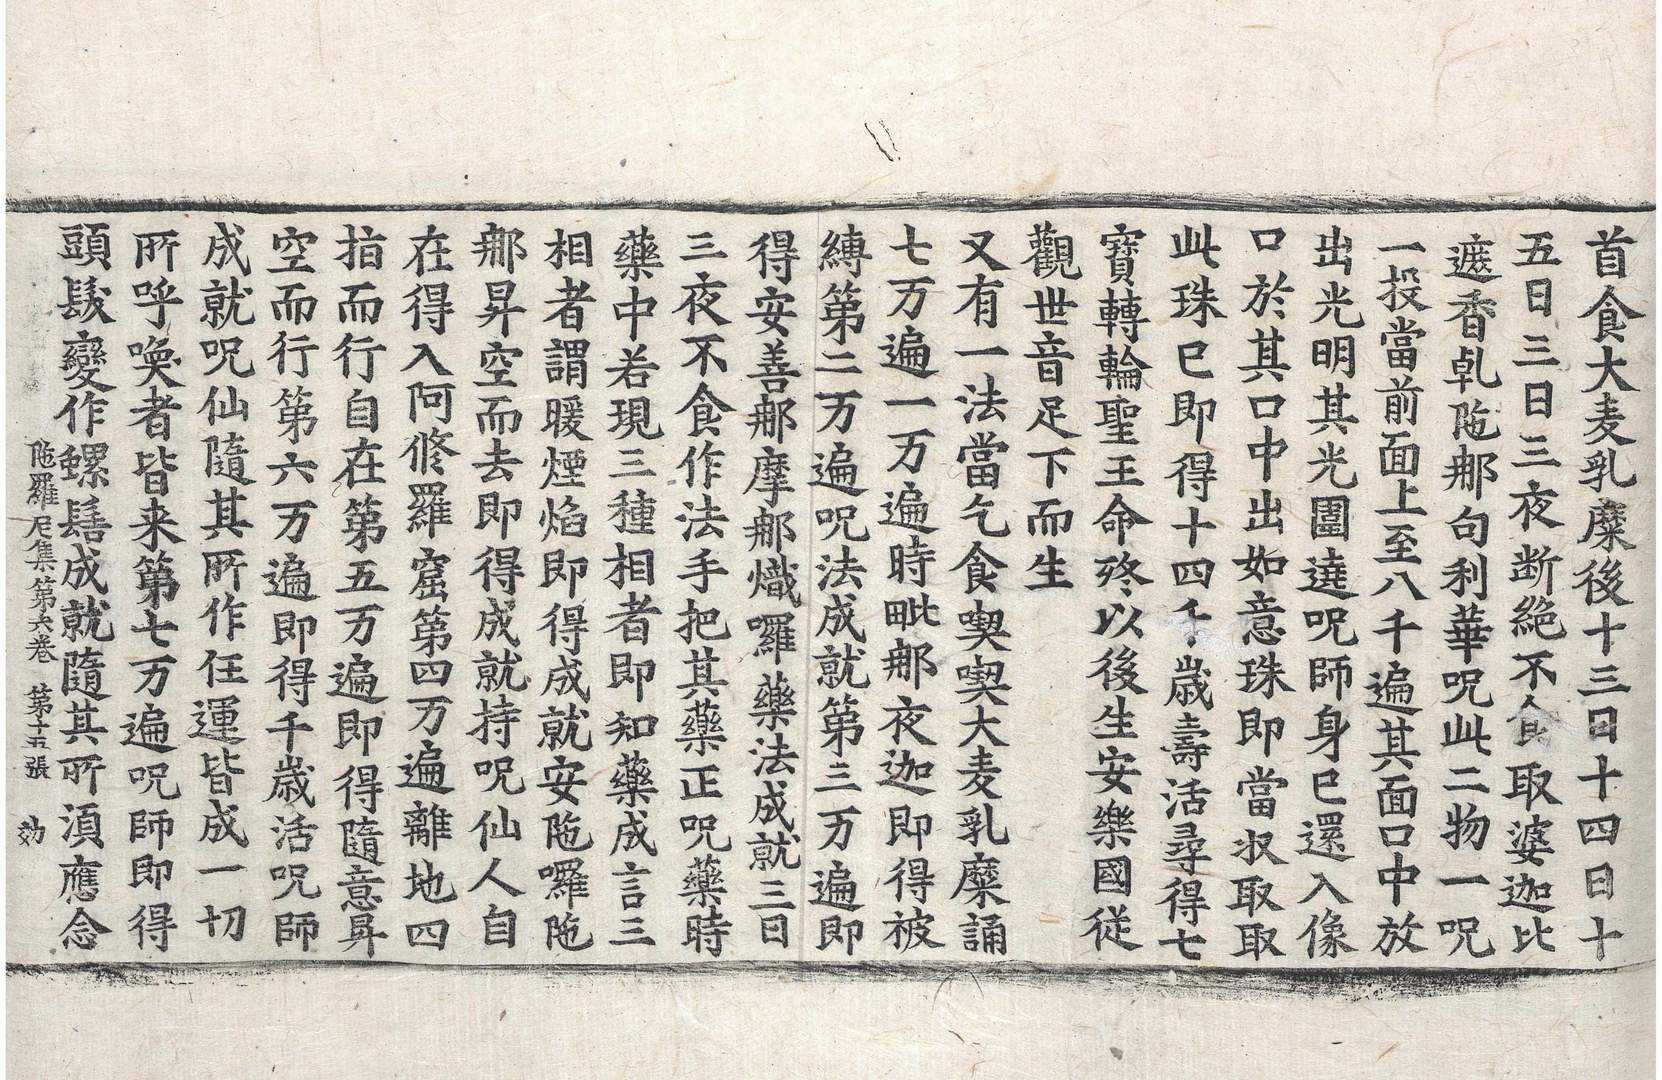 首食大麦乳糜後十三日十四日十
五日三日三夜断絶不食取婆迦比
遮香乹陁𨚗句利華呪此二物一呪
一投當前面上至八千遍其面口中放
出光明其光圍遶呪師身已還入像
口於其口中出如意珠即當収取取
此珠已即得十四千歳壽活尋得七
寶轉輪聖王命終以後生安樂國従
觀世音足下而生
又有一法當乞食喫喫大麦乳糜誦
七万遍一万遍時毗𨚗夜迦即得被
縛第二万遍呪法成就第三万遍即
得安善𨚗摩𨚗熾囉藥法成就三日
三夜不食作法手把其藥正呪藥時
藥中若現三種相者即知藥成言三
相者謂暖煙焰即得成就安陁囉陁
𨚗昇空而去即得成就持呪仙人自
在得入阿修羅窟第四万遍離地四
指而行自在第五万遍即得隨意昇
空而行第六万遍即得千歳活呪師
成就呪仙隨其所作任運皆成一切
所呼喚者皆来第七万遍呪師即得
頭髮變作螺髻成就隨其所須應念
陁羅尼集第六卷　第十五張　効